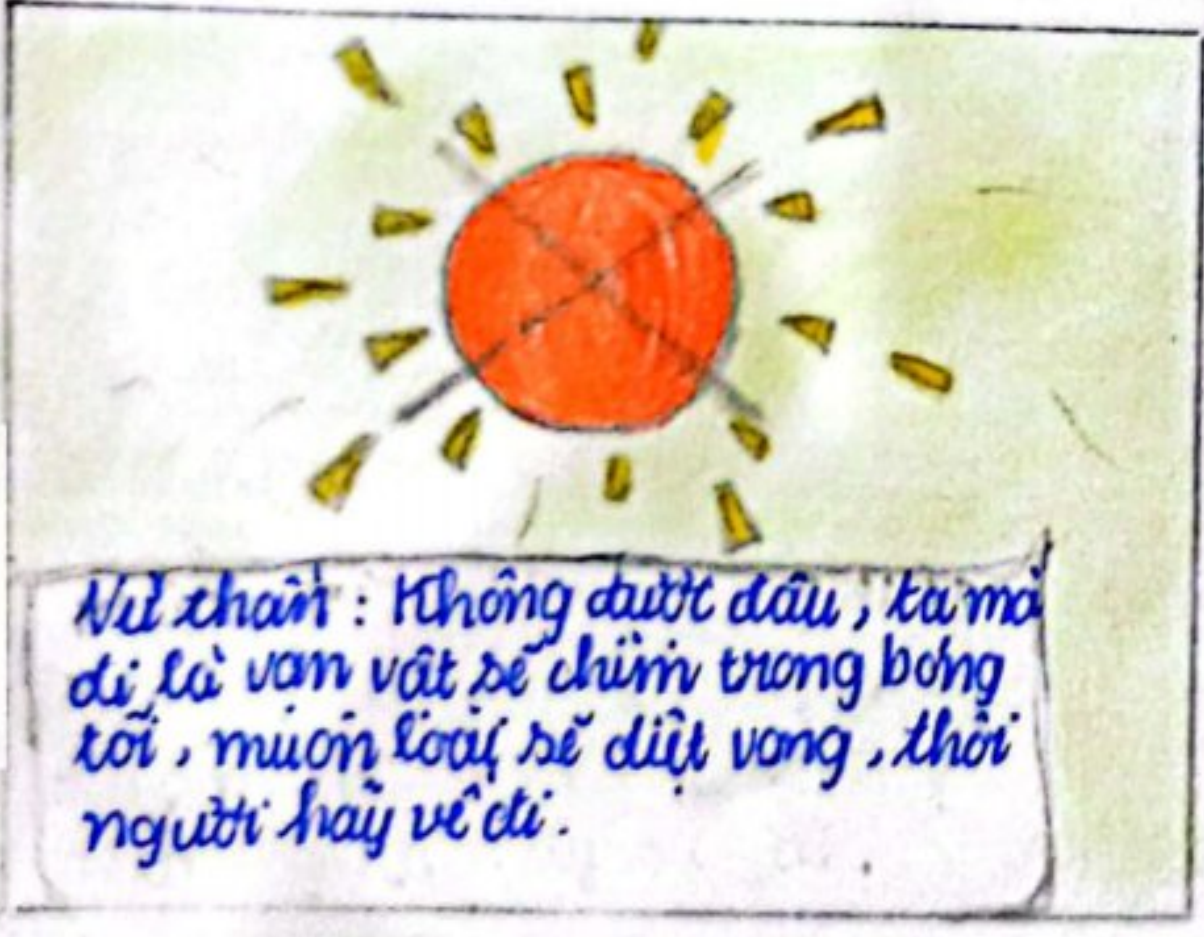 Nữ thần : Không được đâu , ta mà
đi là vạn vật sẽ chìm trong bóng
tối , muôn loài sẽ diệt vong , thôi
người hãy về đi .